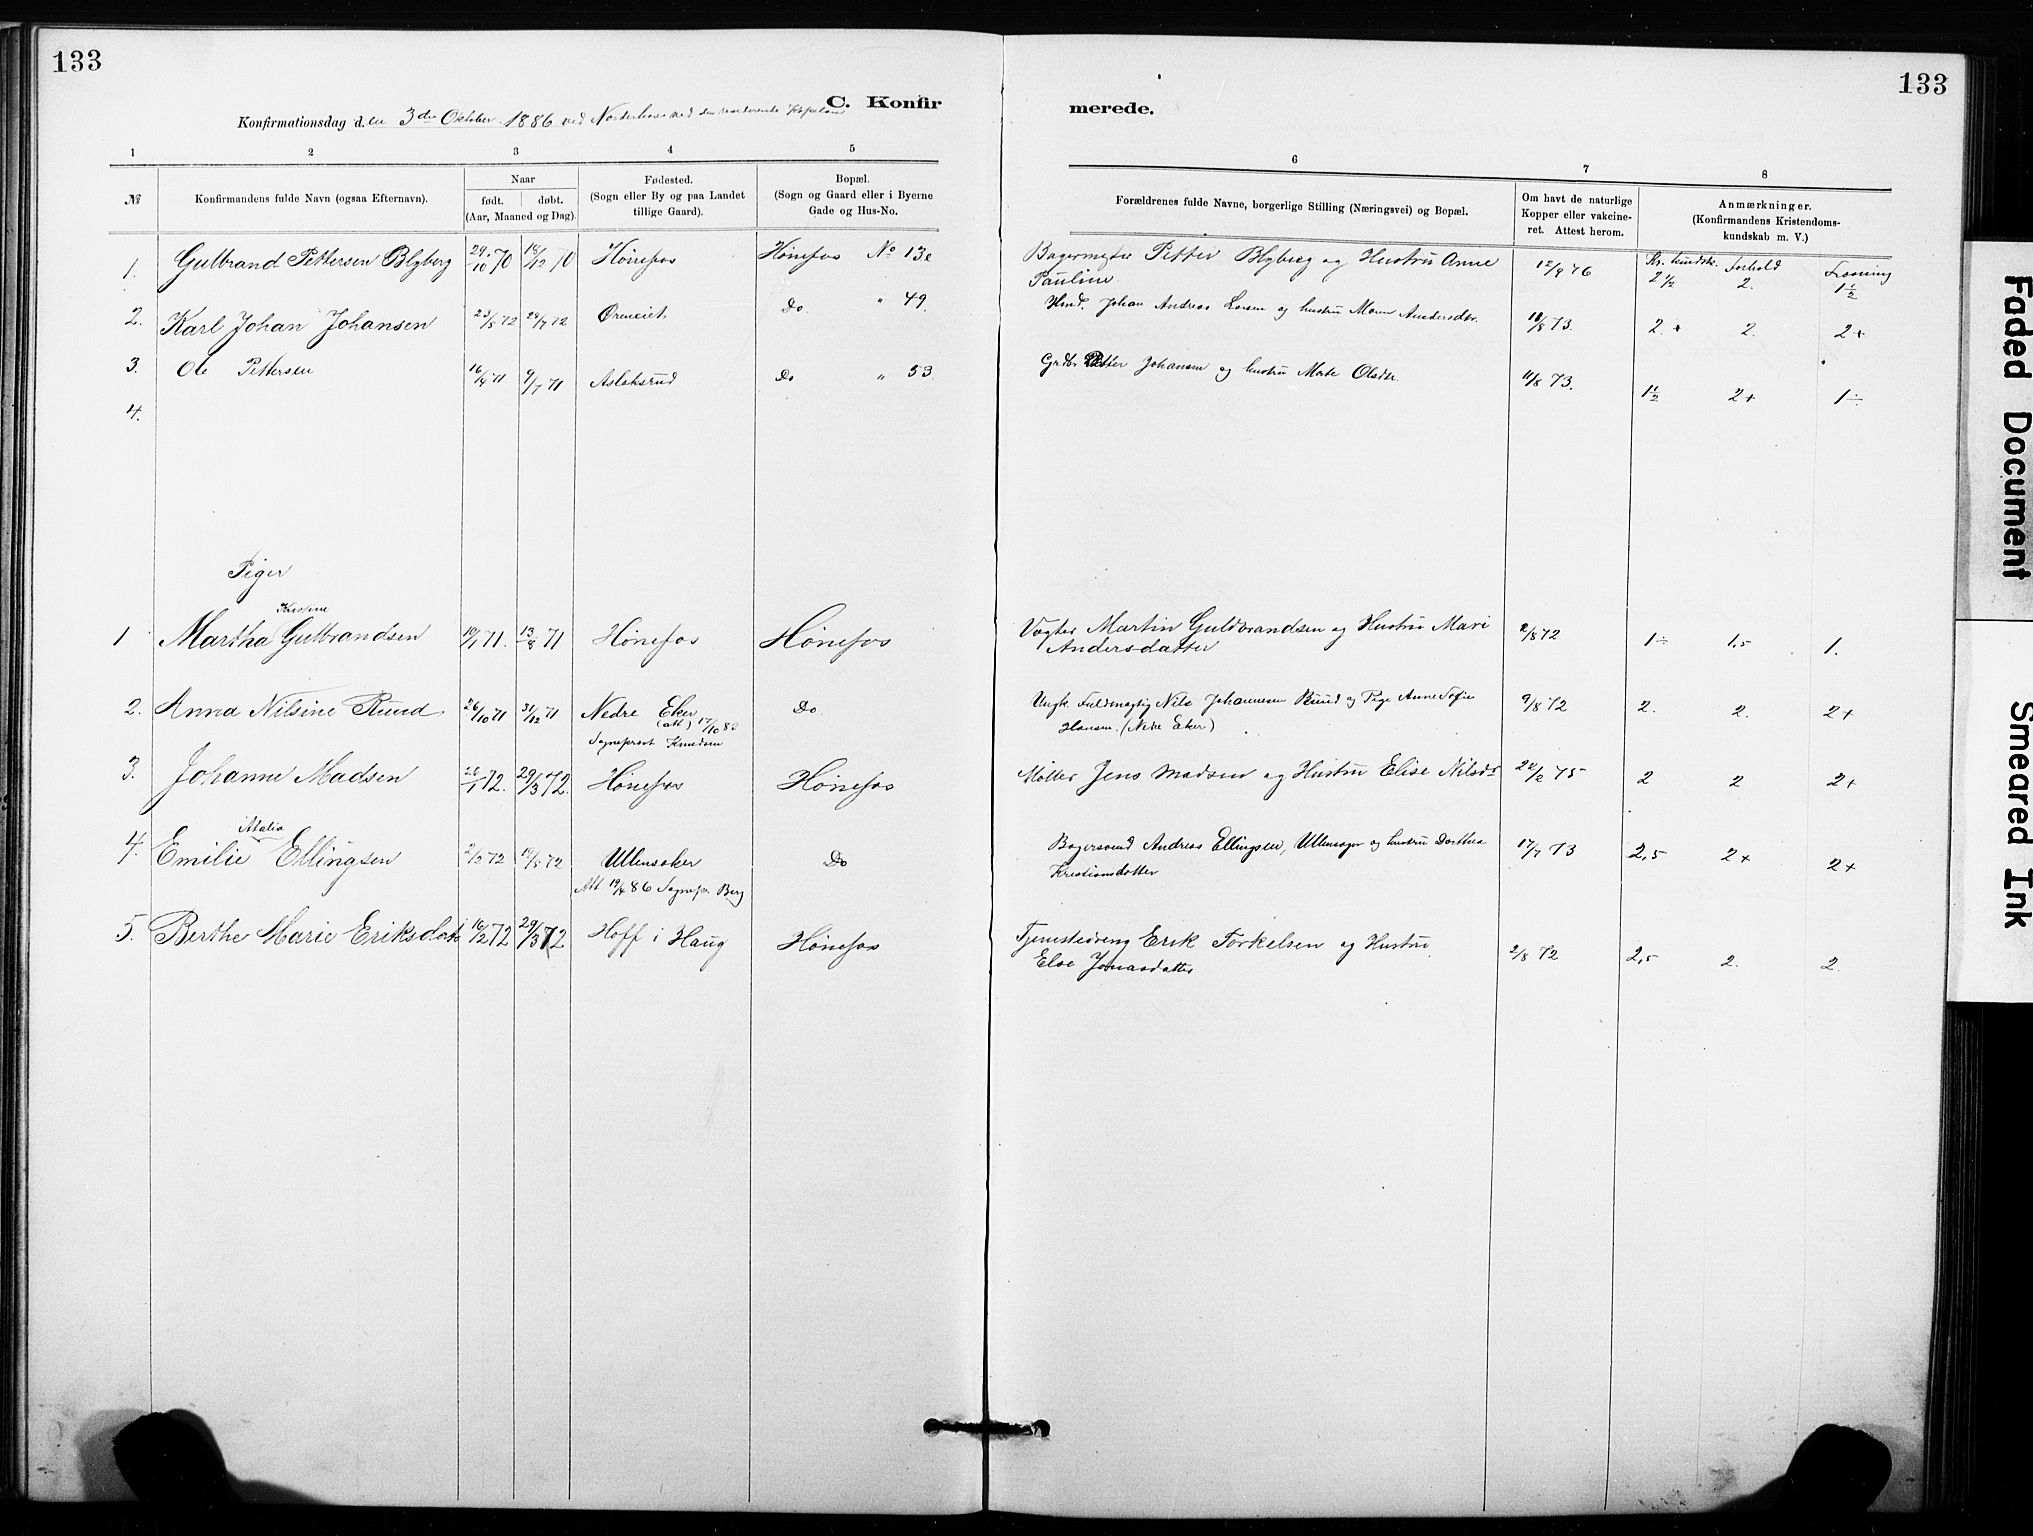 133
133
C. Konfir
merede.
Konfirmationsdag den 3die Oktober 1886 ved Norderhov ved den residerende Kapelan
1 2 3 4 5
6 7 8
№
Konfirmandens fulde Navn (ogsaa Efternavn).
Naar
født. døbt.
(Aar, Maaned og Dag).
Fødested.
(Sogn eller By og paa Landet
tillige Gaard).
Bopæl.
(Sogn og Gaard eller i Byerne
Gade og Hus-No.
Forældrenes fulde Navne, borgerlige Stilling (Næringsvei) og Bopæl.
Om havt de naturlige
Kopper eller vakcine-
ret. Attest herom.
Anmærkninger.
(Konfirmandens Kristendoms-
kundskab m. V.)
Kr. kundsk. Forhold
1. Gulbrand Pettersen Blyberg 29/10 70 18/12 70 Hønefos Hønefos No 13e Bagermester Petter Blyberg og Hustru Anne
Pauline 12/9 76 2 1/2 2. 1 1/2
2. Karl Johan Johansen 23/5 72 28/7 72 Øreneiet Do. " 49. Johan Andreas Larsen og hustru Maren Andersdtr. 18/8 73. 2. + 2. 2+
3. Ole Pettersen 16/4 71 9/7 71 Aslaksrud Do " 53. Grdbr. Petter Johansen og hustru Marte Olsdtr. 11/8 73. 1 1/2 2+ 1÷
4.
Piger
Kristine
1 Martha Gulbrandsen 10/7 71. 13/8 71 Hønefos Hønefos Vægter Martin Guldbrandsen og Hustru Mari
Andersdatter 2/8 72 1÷ 1,5 1.
2. Anna Nilsine Ruud 26/10 71 31/12 71 Nedre Eker Do Ungk. Fuldmægtig Nils Johannesen Ruud og Pige Anne Sofie
(att) 17/10 83
Hansen. (Nedre Eker) 9/8 72 2. 2. 2+
Sogneprest Knudsen
3. Johanne Madsen 26/1 72. 29/3 72. Hønefos Hønefos Møller Jens Madsen og Hustru Elise Nilsdr 22/2 75 2 2 2+
Atalia
4. Emilie Ellingsen 2/2 72 19/5 72 Ullensaker Do Bagersvend Andreas Ellingsen, Ullensager og hustru Dorthea
Kristiansdatter 17/7 73 2,5 2+ 2+
Att 19/4 86 Sognepr. Berg
5. Berthe Marie Eriksdatr 16/2 72 29/3 72 Hoff i Haug Hønefos Tjenestedreng Erik Torkelsen og Hustru
Else Jonasdatter 2/8 72 2,5 2. 2.
Faded Document
Smeared Ink